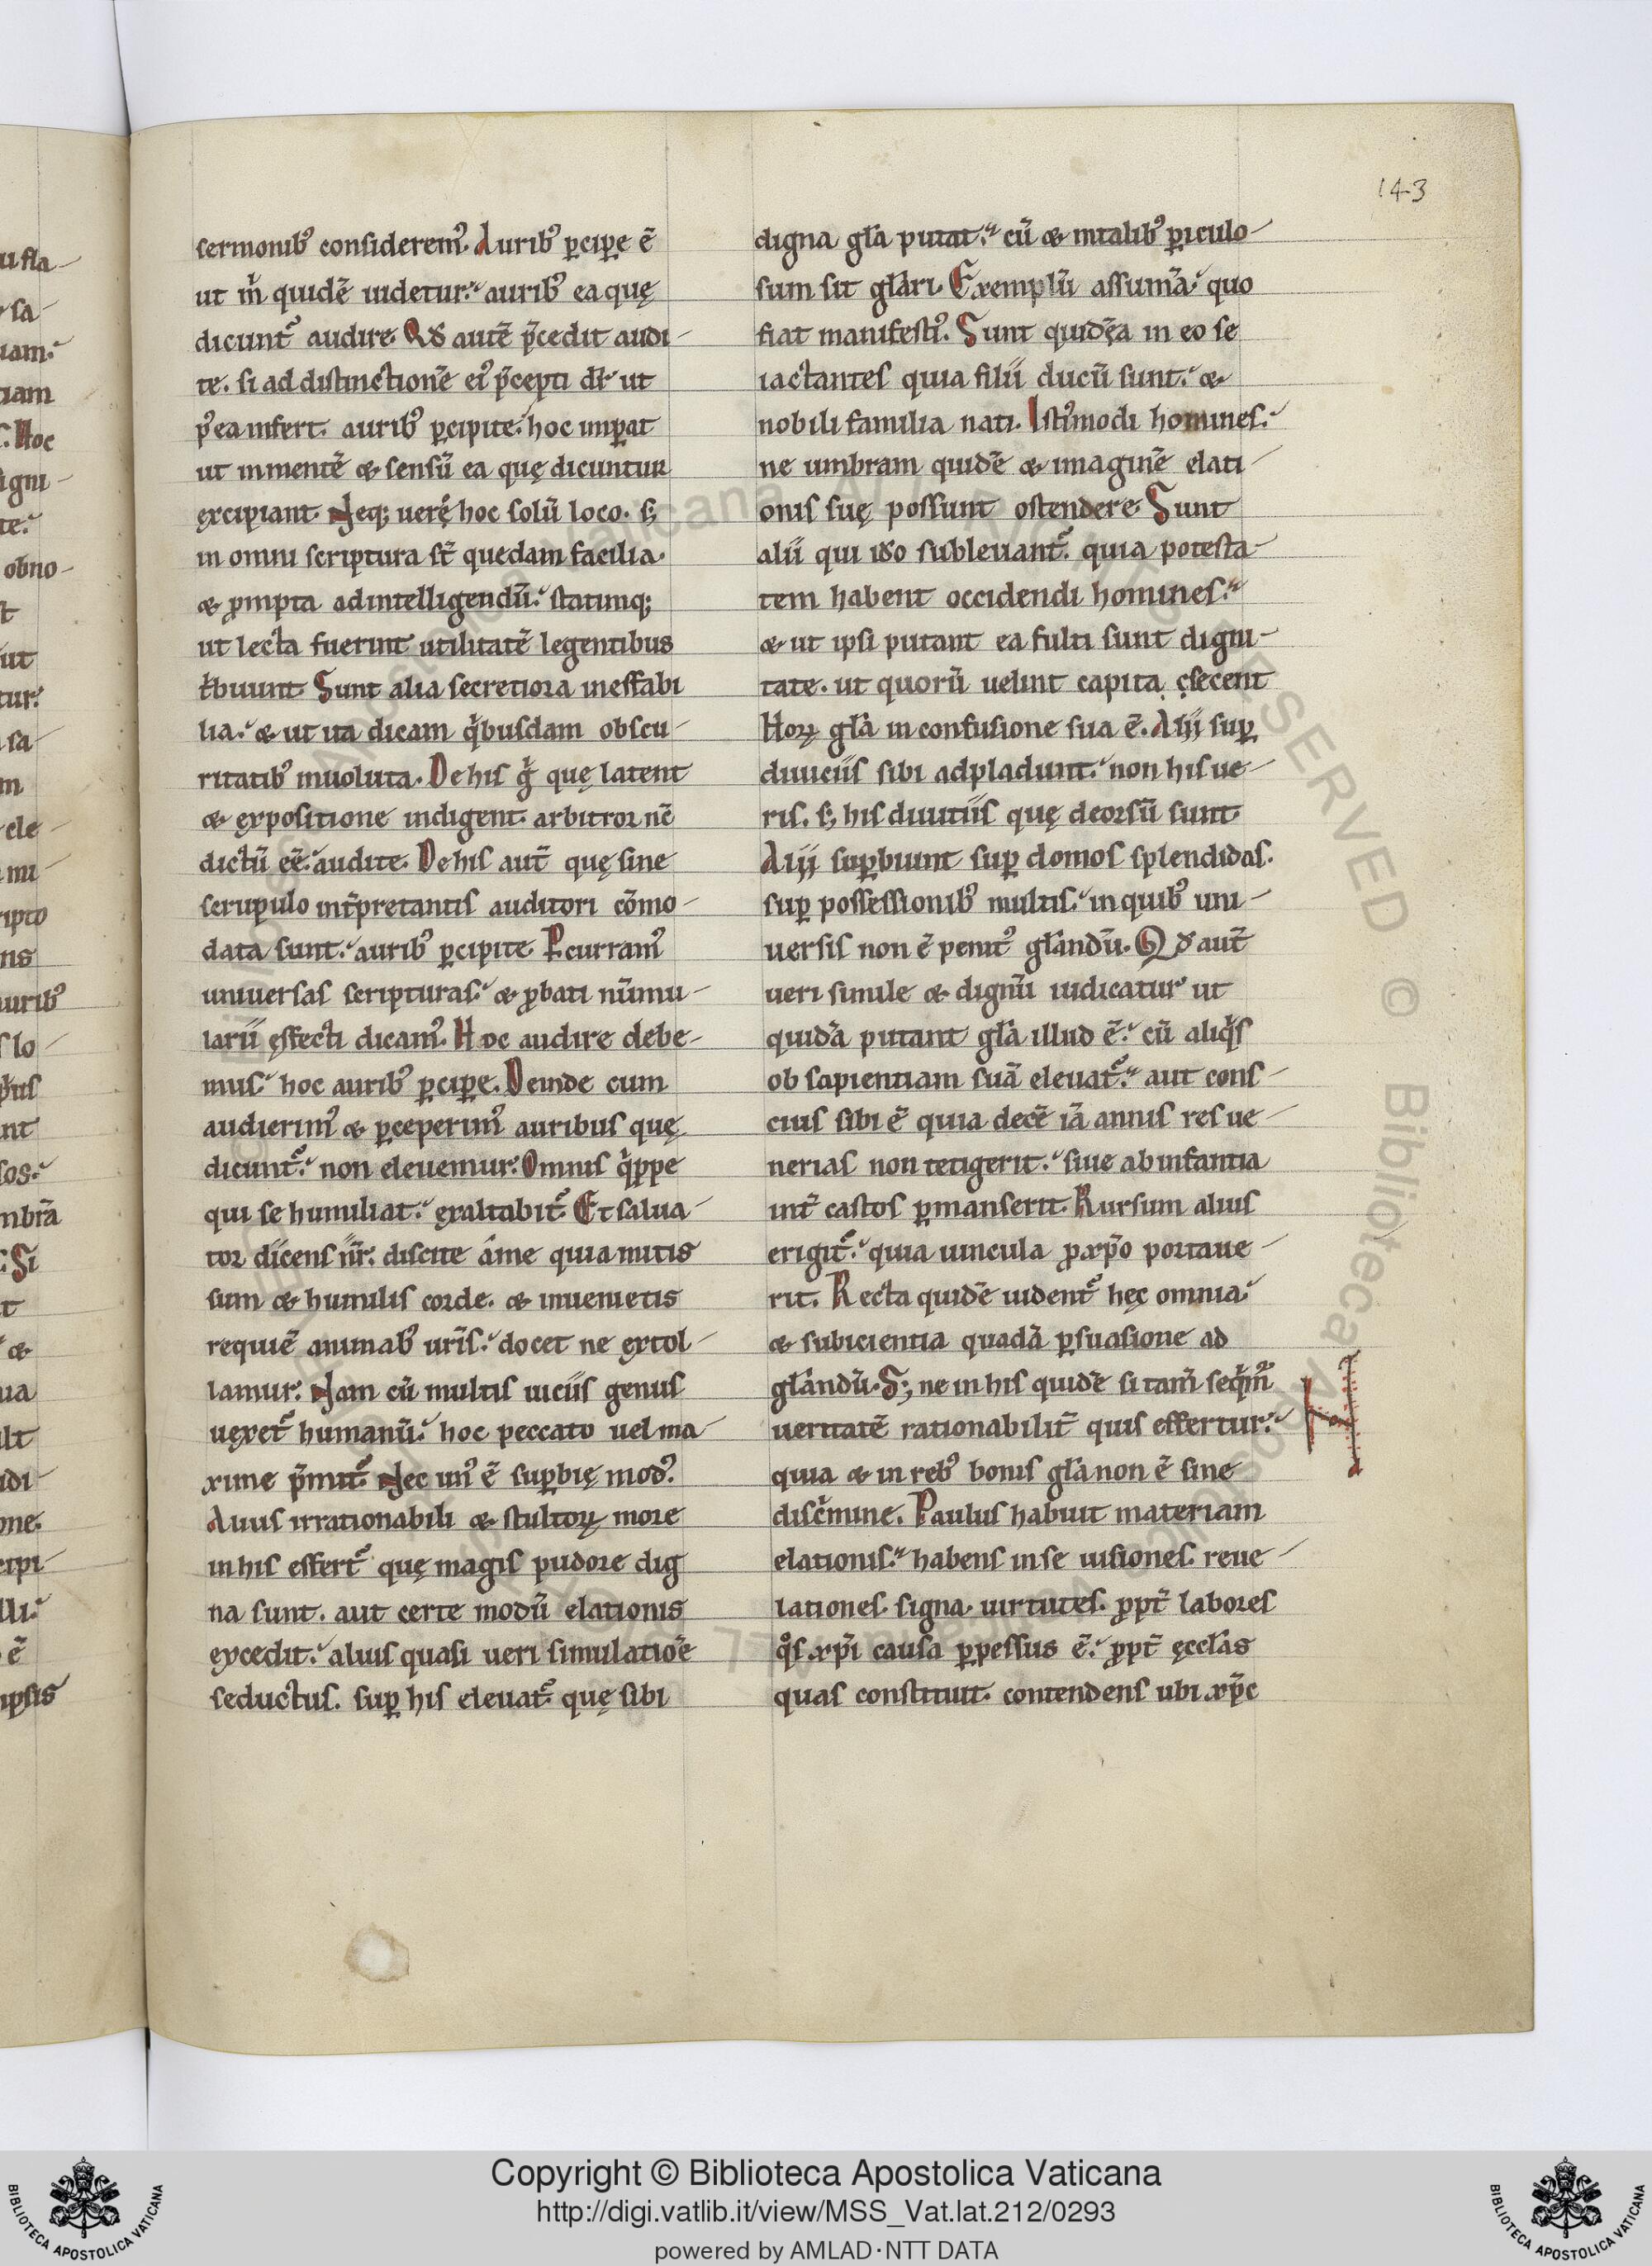 143
sermonib᾽ considerem᾽. Aurib᾽ ꝑcipe ē
ut m̄ quidē uidetur. aurib᾽ ea quę
dicunt᾽ audire. Qđ autē p̄cedit audi-
te. si ad distinctionē ei᾽ p̄cepti dr̄ ut
p᾽ea infert. aurib᾽ ꝑcipite. hoc imꝑat
ut in mentē & sensū ea quę dicuntur
excipiant. Neq; uerę hoc solū loco. s;
in omni scriptura st̄ quedam facilia.
& ꝓmpta ad intelligendū. statimq;
ut lecta fuerint utilitatē legentibus
t̄buunt. Sunt alia secretiora ineffabi
lia. & ut ita dicam q̄busdam obscu-
ritatib᾽ inuoluta. De his ḡ quę latent
& ęxpositione indigent. arbitror nē
dictū eē. audite. De his aut̄ quę sine
scrupulo int̄pretantis auditori cōmo-
data sunt. aurib᾽ ꝑcipite. Ꝑcurram᾽
uniuersas scripturas. & ꝓbati nūmu-
larii ęffecti dicam᾽. Hoc audire debe-
mus. hoc aurib᾽ ꝑcipe. Deinde cum
audierim᾽ & ꝑceperim᾽ auribus quę
dicunt᾽. non eleuemur. Omnis q̄ppe
qui se humiliat. ęxaltabit᾽. Et salua-
tor dicens nr̄. discite a me quia mitis
sum & humilis corde. & inuenietis
requiē animab᾽ ur̄is. docet ne ęxtol-
lamur. Nam cū multis uiciis genus
uęxet᾽ humanū. hoc peccato uel ma-
xime p̄mit᾽. Nec un᾽ ē suꝑbię mod᾽.
Aliis irrationabili & stultoꝝ more
in his effert᾽ quę magis pudore dig
na sunt. aut certe modū elationis
excedit. alius quasi ueri simulatiōe
seductus. suꝑ his eleuat᾽ quę sibi
digna gl̄a putat. cū & in talib᾽ ꝑiculo-
sum sit gl̄ari. Exemplū assumā. quo
fiat manifesti᾽. Sunt quidēa in eo se
iactantes quia filii ducū sunt. &
nobili familia nati. Isti᾽modi homines.
ne umbram quidē & imaginē elati-
onis suę possunt ostendere. Sunt
alii qui iđo subleuant᾽. quia potesta-
tem habent occidendi homines.
& ut ipsi putant ea fulti sunt digni-
tate. ut quorū uelint capita çsecent
Hoꝝ gl̄a in confusione sua ē. Alij suꝑ
diuiciis sibi adpladunt. non his ue-
ris. s; his diuitiis quę deorsū sunt.
Alij suꝑbiunt suꝑ domos splendidas.
suꝑ possessionib᾽ multis. in quib᾽ uni-
uersis non ē penit᾽ gl̄andū. Qđ aut̄
ueri simile & dignū iudicatur ut
quidā putant gl̄a illud ē. cū aliq̄s
ob sapientiam suā eleuat᾽. aut cons-
cius sibi ē quia decē iā annis res ue-
nerias non tetigerit. siue ab infantia
int̄ castos ꝑmanserit. Rursum alius
erigit᾽. quia uincula ꝓ xp̄o portaue-
rit. Recta quidē uident᾽ hęc omnia.
& subicientia quadā ꝑsuasione ad
gl̄andū. S; ne in his quidē si tam̄ seq̄m᾽
ueritatē rationabilit̄ quis effertur.
quia & in reb᾽ bonis gl̄a non ē sine
disc̄mine. Paulus habuit materiam
elationis. habens in se uisiones. reue-
lationes. signa. uirtutes. ꝓpt̄ labores
qͦs xp̄i causa ꝑpessus ē. ꝓpt̄ ęccl̄as
quas constituit. contendens ubi xp̄c
Copyright © Biblioteca Apostolica Vaticana
http://digi.vatlib.it/view/MSS_Vat.lat.212/0293
powered by AMLAD·NTT DATA
BIBLIOTECA APOSTOLICA VATICANA
BIBLIOTECA APOSTOLICA VATICANA